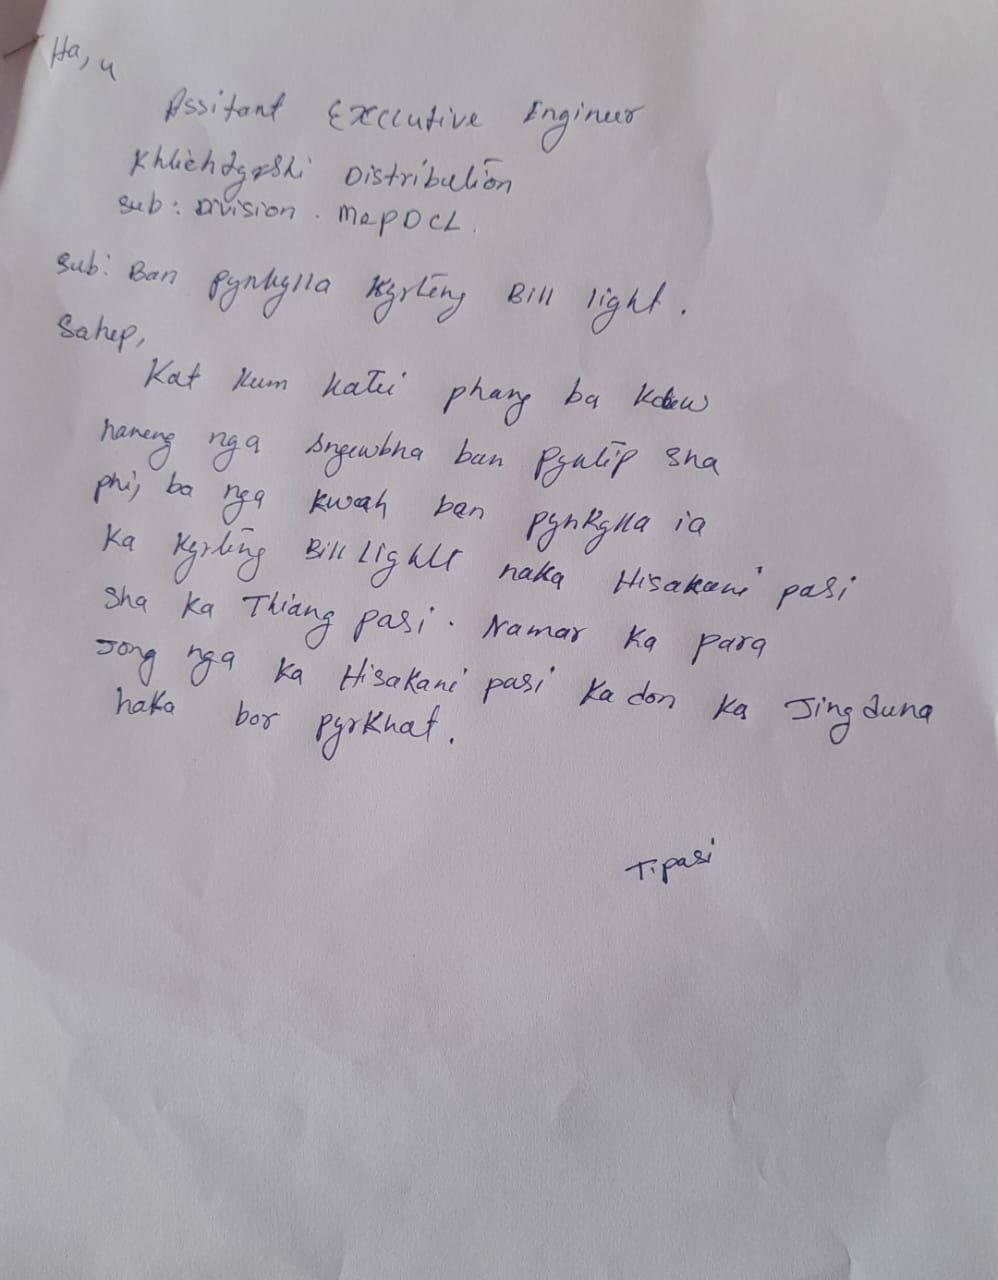 Ha, u
Assitant Executive Engineer
Khliehtyrshi Distribution
Sub: Division. MePDCL.
Sub: Ban pynkylla Kyrteng Bill light.
Sahep,
Kat kum katei phang ba kdew
haneng nga sngewbha ban pyntip sha
phi, ba nga kwah ban pynkylla ia
ka kyrteng Bill Light naka Hisakani pasi
sha ka Thiang pasi. Namar ka para
Jong nga ka Hisakani pasi ka don ka Jingduna
haka bor pyrkhat.
T. pasi